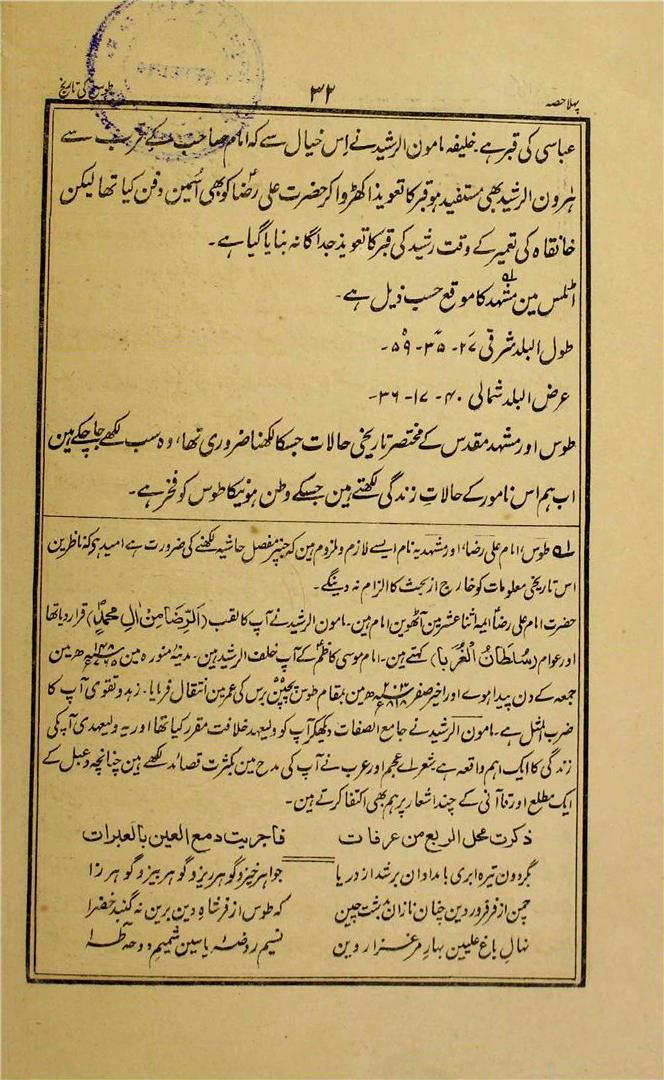 پہلا حصہ
۳۲
طوس کی تاریخ
عباسی کی قبر ہے۔ خلیفہ مامون الرشید نے اِس خیال سے کہ امام صاحب کے قرب سے
ہارون الرشید بھی مستفید ہو قبر کا تعویذ اکھڑوا کر حضرت علی رضاؑ کو بھی اُسمین دفن کیا تھا لیکن
خانقاہ کی تعمیر کے وقت رشید کی قبر کا تعویذ جداگانہ بنایا گیا ہے۔
اٹلس مین مشہد کا موقع حسب ذیل ہے۔
طول البلد شرقی ۲۷۔ ۳۵۔ ۵۹۔
عرض البلد شمالی ۴۰۔ ۱۷۔ ۳۶۔
طوس اور مشہد مقدس کے مختصر تاریخی حالات جسکا لکھنا ضروری تھا، وہ سب لکھے جا چکے ہین
اب ہم اس نامور کے حالاتِ زندگی لکھتے ہین جسکے وطن ہونیکا طوس کو فخر ہے۔
لہ طوس، امام علی رضا، اور مشہد یہ نام ایسے لازم و ملزوم ہین کہ جنپر مفصل حاشیہ لکھنے کی ضرورت ہے امید ہی کہ ناظرین
اس تاریخی معلومات کو خارج از بحث کا الزام نہ دینگے۔
حضرت امام علی رضاؑ ایمہ اثنا عشر مین آٹھوین امام ہین۔ مامون الرشید نے آپ کا لقب (اَلرِّضَا مِنْ اٰلِ مُحَمَّدٍ) قرار دیا تھا
اور عوام (سُلطَانُ الغُرَبَا) کہتے ہین۔ امام موسی کاظمؑ کے آپ خلف الرشید ہین۔ مدینۂ منورہ مین ۱۴۸ھ مین
جمعہ کے دن پیدا ہوے اور اخیر صفر ۲۰۳ھ مین بمقام طوس پچپن برس کی عمر مین انتقال فرمایا۔ زہد و تقوی آپ کا
ضرب المثل ہے۔ مامون الرشید نے جامع الصفات دیکھکر آپ کو ولیعہد خلافت مقرر کیا تھا اور یہ ولیعہدی آپ کی
زندگی کا ایک اہم واقعہ ہے شعراے عجم اور عرب نے آپ کی مدح مین بکثرت قصائد لکھے ہین چنانچہ دعبل کے
ایک مطلع اور قاآنی کے چند اشعار پر ہم بھی اکتفا کرتے ہین۔
ذکرت محل الربع من عرفات فاجریت دمع العین بالعبرات
بگردون تیرہ ابری بامدادان برشد از دریا جواہر خیز و گوہر ریز و گوہر بیز و گوہر زا
چمن از فر فروردین چنان نازان بہشت چین کہ طوس از فر شاہِ دین برین نہ گنبد خضرا
نہالِ باغ علیین بہارِ مرغزار وین نسیم روضۂ یاسین شمیم دوحۂ طٰہٰ